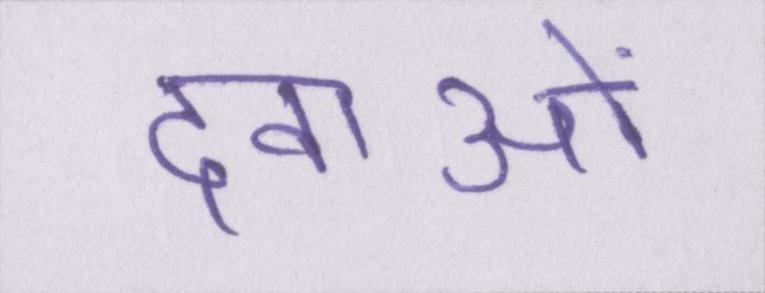 दवाओं